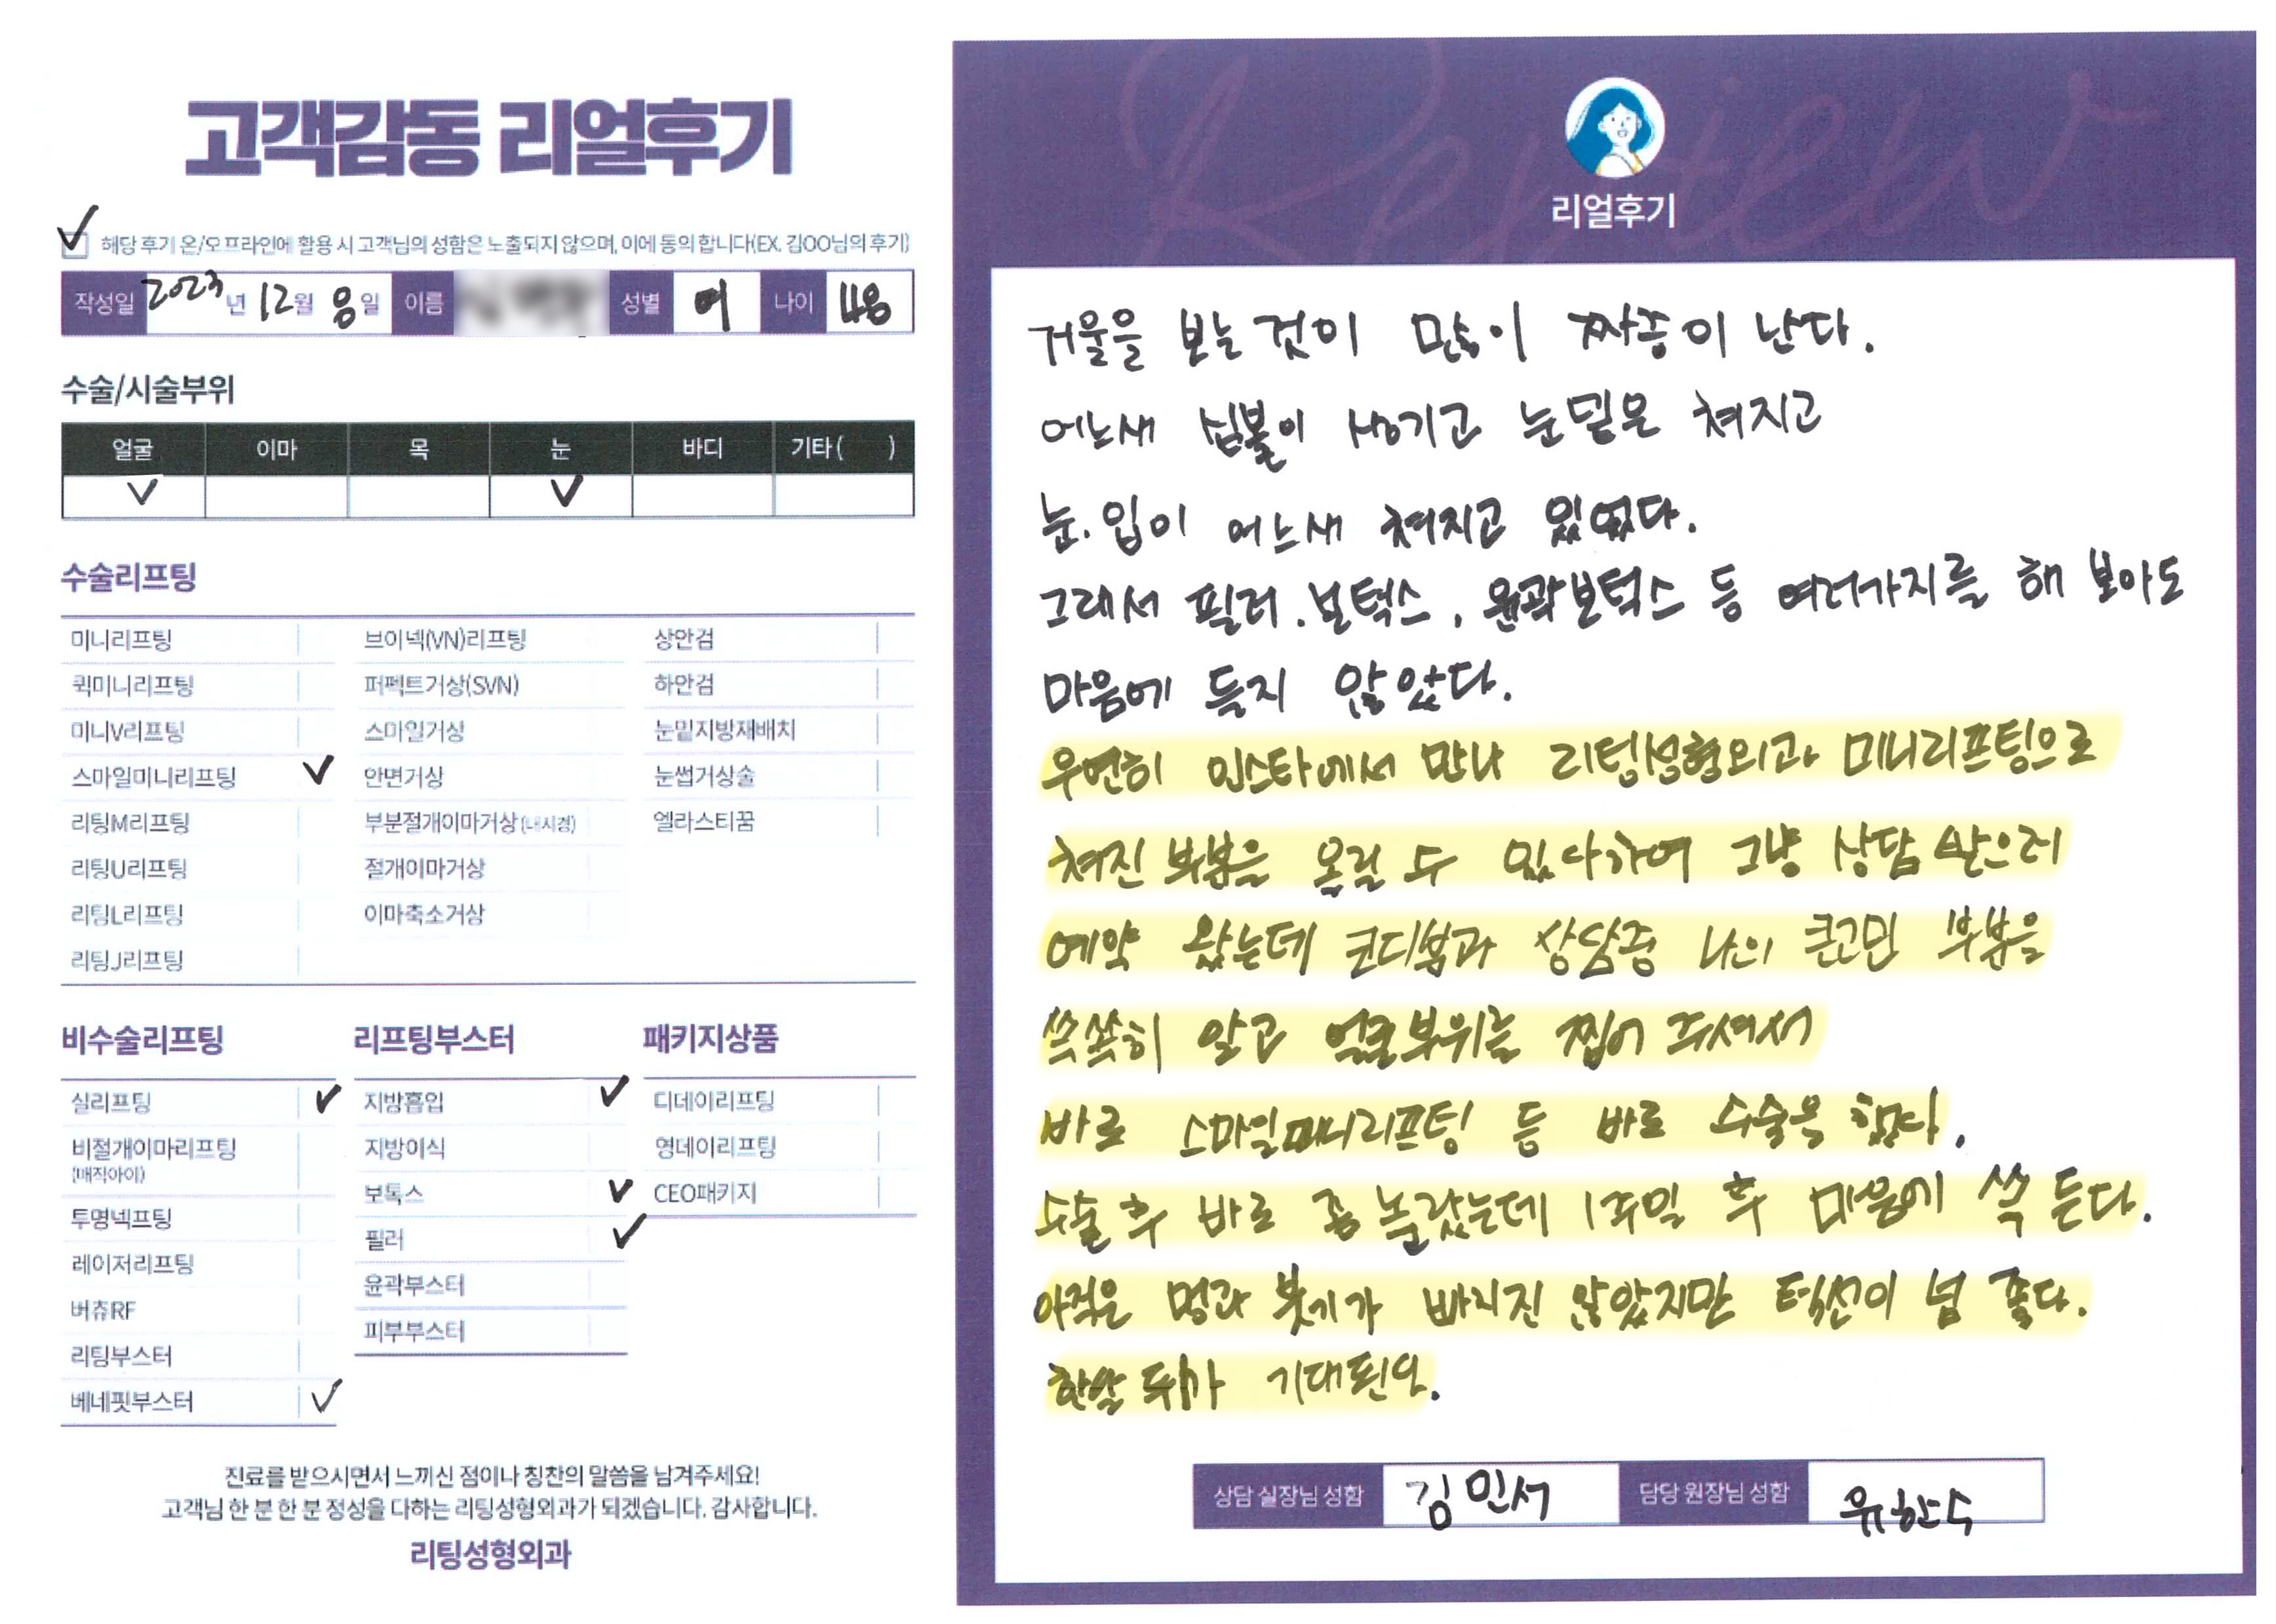 고객감동 리얼후기
해당 후기 온/오프라인에 활용 시 고객님의 성함은 노출되지 않으며, 이에 동의 합니다(EX. 김OO님의 후기)
작성일 2023년 12월 8일 이름 성별 여 나이 48
수술/시술부위
얼굴 이마 목 눈 바디 기타 ( )
수술리프팅
미니리프팅 브이넥(VN)리프팅 상안검
퀵미니리프팅 퍼펙트거상(SVN) 하안검
미니V리프팅 스마일거상 눈밑지방재배치
스마일미니리프팅 안면거상 눈썹거상술
리팅M리프팅 부분절개이마거상(내시경) 엘라스티꿈
리팅U리프팅 절개이마거상
리팅L리프팅 이마축소거상
리팅J리프팅
비수술리프팅
실리프팅
비절개이마리프팅
(매직아이)
투명넥프팅
레이저리프팅
버츄RF
리팅부스터
베네핏부스터
리프팅부스터
지방흡입
지방이식
보톡스
필러
윤곽부스터
피부부스터
패키지상품
디데이리프팅
영데이리프팅
CEO패키지
진료를 받으시면서 느끼신 점이나 칭찬의 말씀을 남겨주세요!
고객님 한 분 한 분 정성을 다하는 리팅성형외과가 되겠습니다. 감사합니다.
리팅성형외과
Review
리얼후기
거울을 보는 것이 많이 짜증이 난다.
어느새 심볼이 생기고 눈밑은 쳐지고
눈.입이 어느새 쳐지고 있었다.
그래서 필러.보턱스, 윤곽보턱스 등 여러가지를 해 보아도
마음에 들지 않았다.
우연히 인스타에서 만나 리팅성형외과 미니리프팅으로
쳐진 부분을 올릴 수 있다하여 그냥 상담 받으러
예약 왔는데 코디분과 상담중 나의 큰고민 부분을
쏙쏙히 알고 얼굴부위를 찝어 주셔서
바로 스마일미니리프팅 등 바로 수술을 했다.
수술 후 바로 좀 놀랐는데 1주일 후 마음에 쏙 든다.
아직은 멍과 붓기가 빠지진 않았지만 턱선이 넘 좋다.
한달 뒤가 기대된다.
상담 실장님 성함 김민서 담당 원장님 성함 유한수